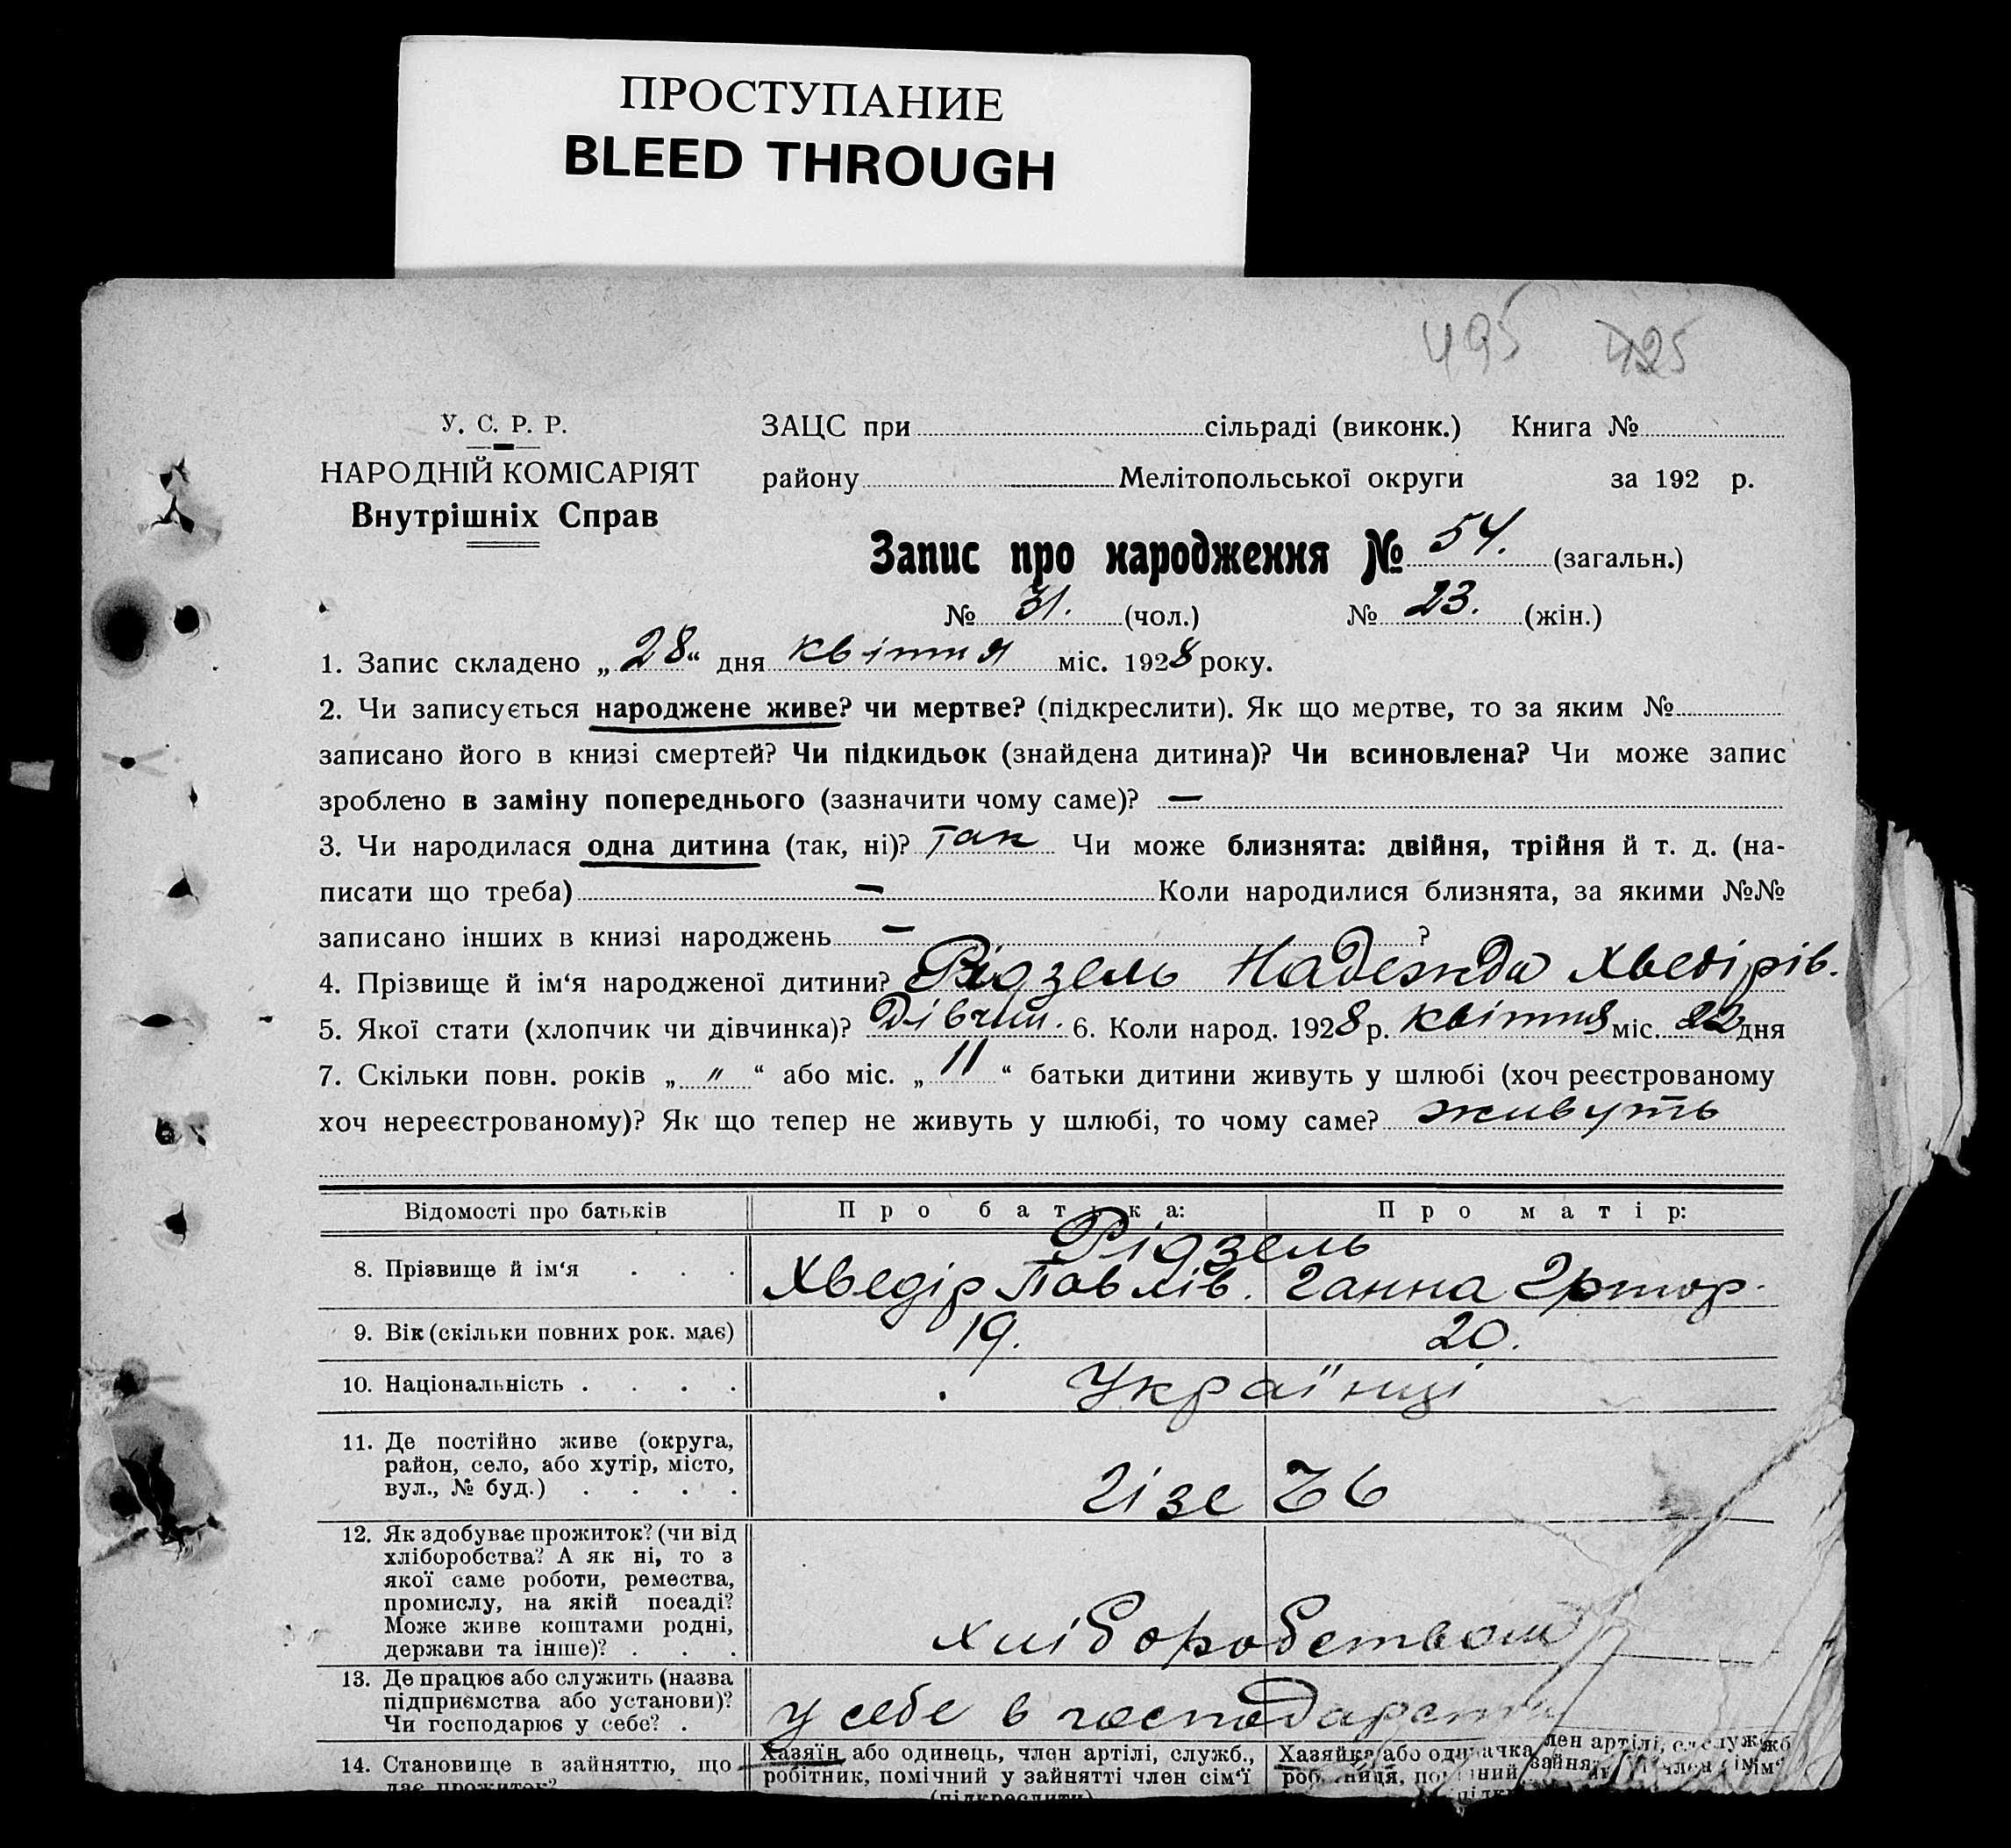 ПРОСТУПАНИЕ
BLEED THROUGH
495 425
У. С. Р. Р.
НАРОДНІЙ КОМІСАРІЯТ
Внутрішніх Справ
ЗАЦС при сільраді (виконк.) Книга №
району Мелітопольської округи за 192 р.
Запис про народження № 54. (загальн.)
№ 31. (чол.) № 23. (жін.)
1. Запис складено „28“ дня квітня міс. 1928 року.
2. Чи записується народжене живе? чи мертве? (підкреслити). Як що мертве, то за яким №
записано його в книзі смертей? Чи підкидьок (знайдена дитина)? Чи всиновлена? Чи може запис
зроблено в заміну попереднього (зазначити чому саме)? —
3. Чи народилася одна дитина (так, ні)? так Чи може близнята: двійня, трійня й т. д. (на-
писати що треба) — Коли народилися близнята, за якими №№
записано інших в книзі народжень — ?
4. Прізвище й ім‘я народженої дитини? Рідзель Надежда Хведірів.
5. Якої стати (хлопчик чи дівчинка)? Дівчин. 6. Коли народ. 1928 р. квітня міс. 22 дня
7. Скільки повн. років „ " “ або міс. „ 11 “ батьки дитини живуть у шлюбі (хоч реєстрованому
хоч нереєстрованому)? Як що тепер не живуть у шлюбі, то чому саме? живуть
Відомості про батьків Про батька: Про матір:
Рідзель
8. Прізвище й ім‘я . . . Хведір Павлів. Ганна
9. Вік (скільки повних рок. має) 19. 20.
10. Національність . . . . Українці
11. Де постійно живе (округа,
район, село, або хутір, місто,
вул., № буд.) . . . .
12. Як здобуває прожиток? (чи від
хліборобства? А як ні, то з
якої саме роботи, ремества,
промислу, на якій посаді?
Може живе коштами родні,
держави та інше)? . . .
хліборобством
13. Де працює або служить (назва
підприємства або установи)?
Чи господарює у себе? .
у себе в господарстві
14. Становище в зайняттю, що
дає прожиток?
Хазяїн або одинець, член артілі, служб.,
робітник, помічний у зайнятті член сім‘ї
(підкреслити)
Хазяйка або одиначка член артілі, служб